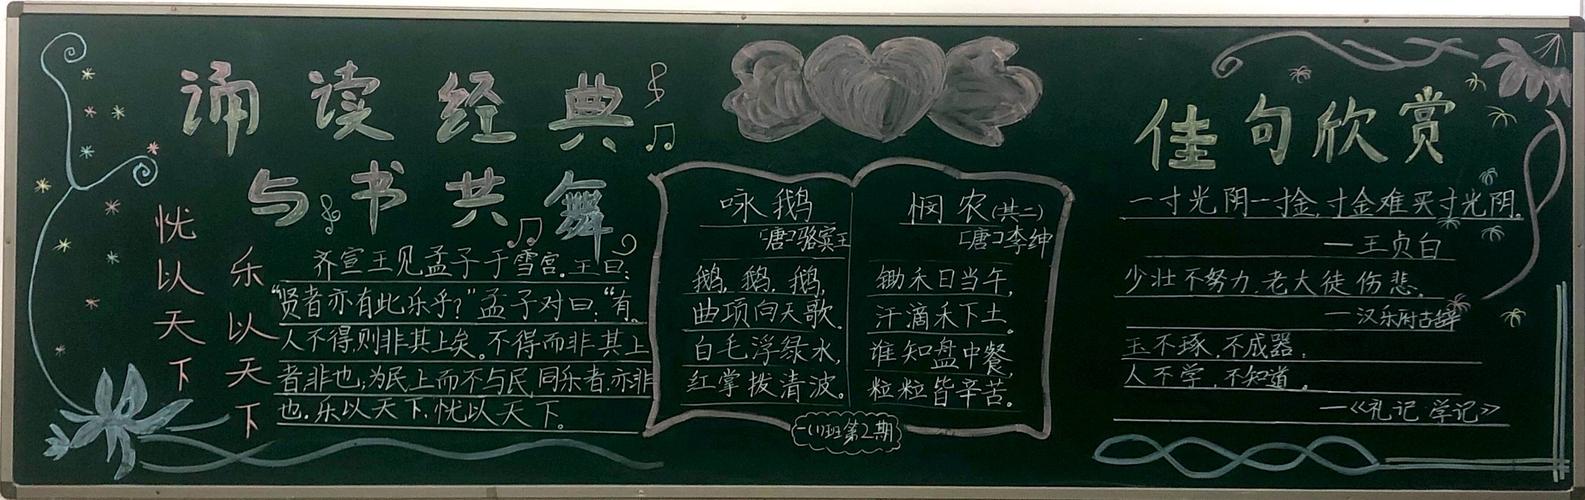 诵读经典
与书共舞
忧以天下
乐以天下
齐宣王见孟子于雪宫。王曰:
“贤者亦有此乐乎?”孟子对曰:“有。
人不得,则非其上矣。不得而非其上
者,非也;为民上而不与民同乐者,亦非
也。乐以天下,忧以天下。
咏鹅
「唐」骆宾王
鹅,鹅,鹅,
曲项向天歌。
白毛浮绿水,
红掌拨清波。
悯农(其二)
「唐」李绅
锄禾日当午,
汗滴禾下土。
谁知盘中餐,
粒粒皆辛苦。
一(1)班第2期
佳句欣赏
一寸光阴一寸金,寸金难买寸光阴。
—王贞白
少壮不努力,老大徒伤悲。
—汉乐府古辞
玉不琢,不成器;
人不学,不知道。
—《礼记 学记》